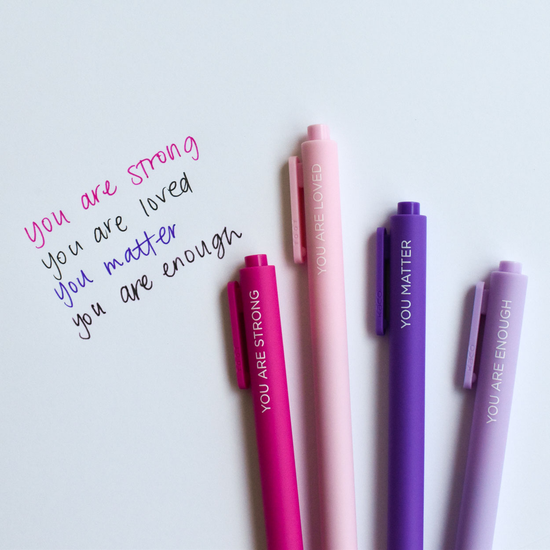 you are strong
you are loved
you matter
you are enough
YOU ARE STRONG
YOU ARE LOVED
YOU MATTER
YOU ARE ENOUGH